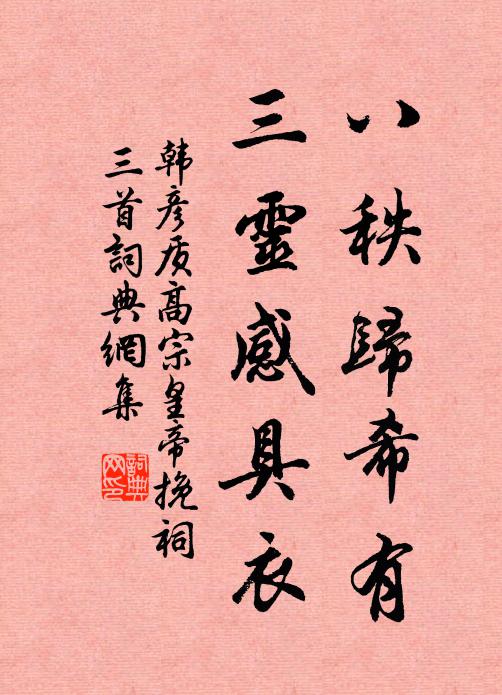 八秩歸希有
三靈感具衣
韩彦质高宗皇帝挽祠
三首詞典網集
詞典網印